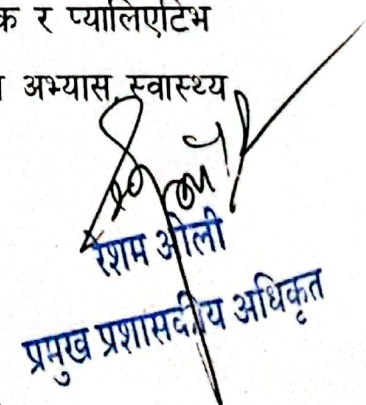 क र प्यालिएटिभ
अभ्यास, स्वास्थ्य
रेशम ओली
प्रमुख प्रशासकीय अधिकृत